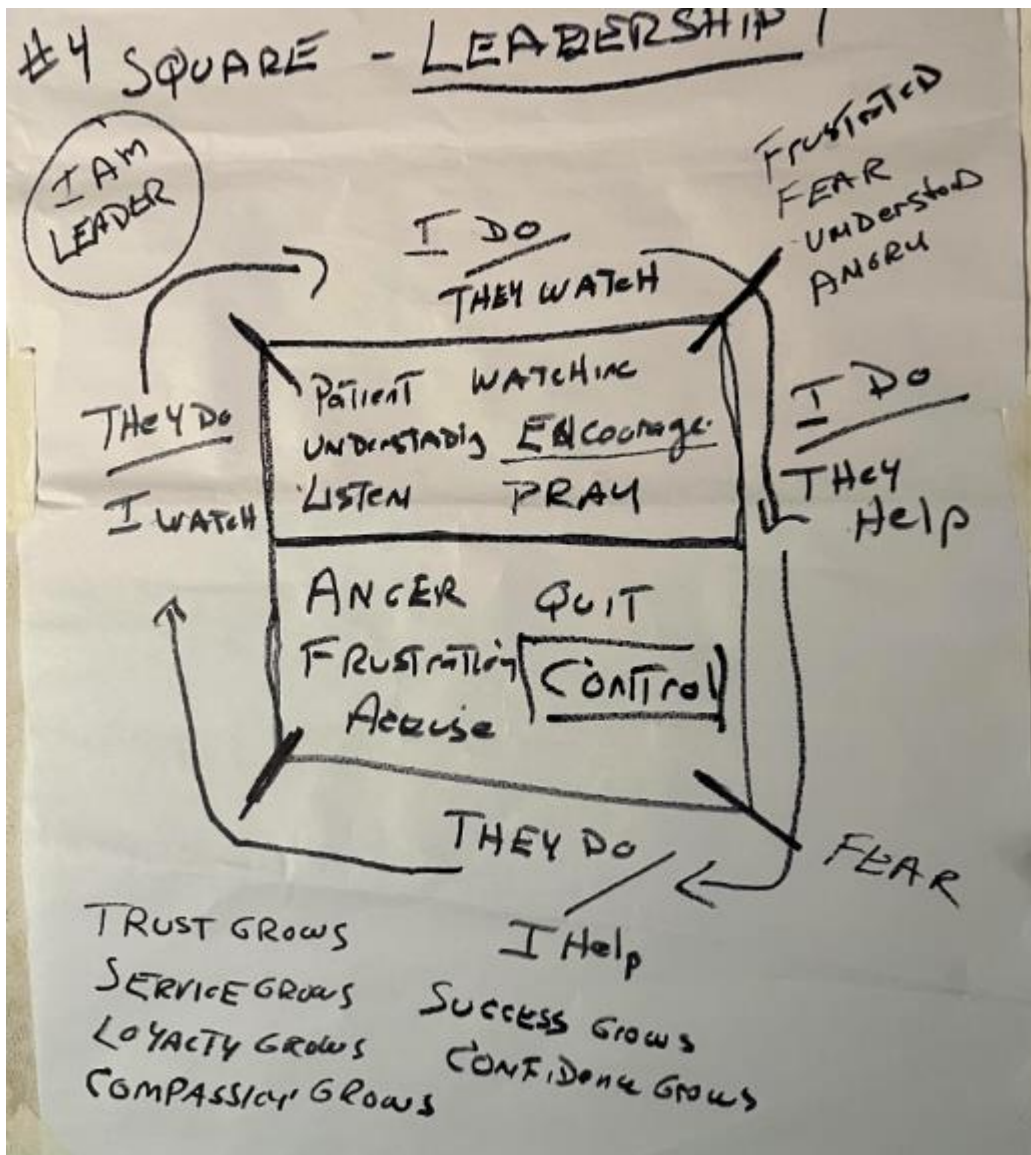 #4 SQUARE - LEADERSHIP
I AM
LEADER
FRUSTRATED
FEAR
UNDERSTOOD
ANGRY
I DO
THEY WATCH
I DO
THEY
HELP
THEY DO
I WATCH
PATIENT WATCHING
UNDERSTADIG ENCOURAGE
LISTEN PRAY
ANGER QUIT
FRUSTRATION CONTROL
ACCUSE
THEY DO
I HELP
FEAR
TRUST GROWS
SERVICE GROWS
LOYALTY GROWS
COMPASSION GROWS
SUCCESS GROWS
CONFIDENCE GROWS